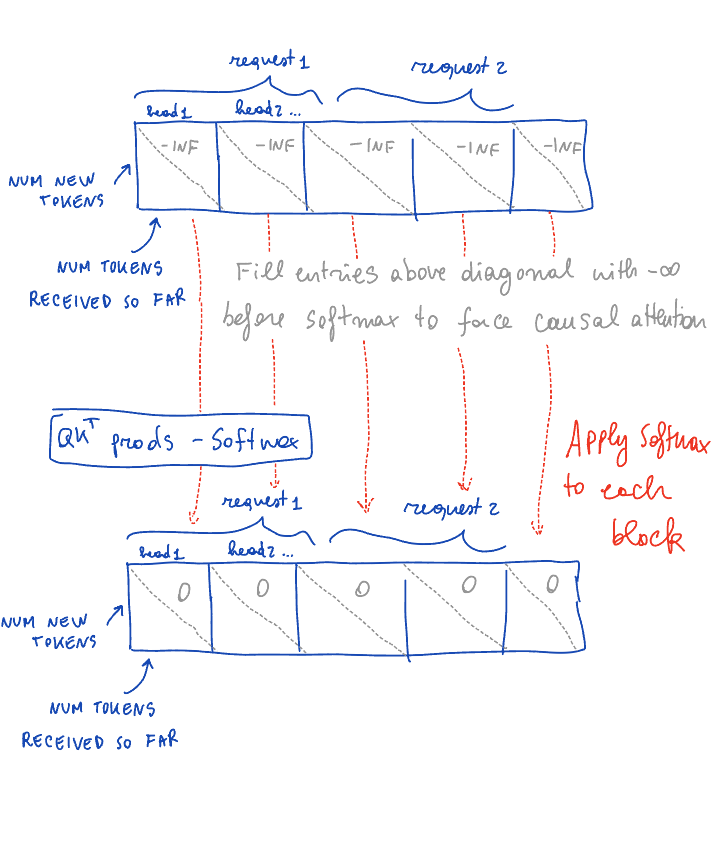 request 1
request 2
head1 head2 ...
-INF -INF -INF -INF -INF
NUM NEW
TOKENS
NUM TOKENS
RECEIVED SO FAR
Fill entries above diagonal with -∞
before softmax to force causal attention
QK^T prods - Softmax
Apply Softmax
to each
block
request 1
request 2
head1 head2 ...
0 0 0 0 0
NUM NEW
TOKENS
NUM TOKENS
RECEIVED SO FAR